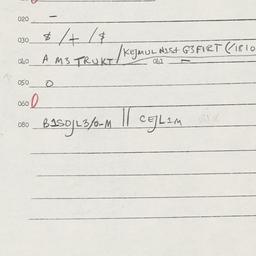 020 –
030 $ / + / $
040 A M3 TRUKT / KEJMUL NIST G3FIRT (/1810
041 –
050 0
060 0
080 B1SOJL3/O-M || CEJL1M